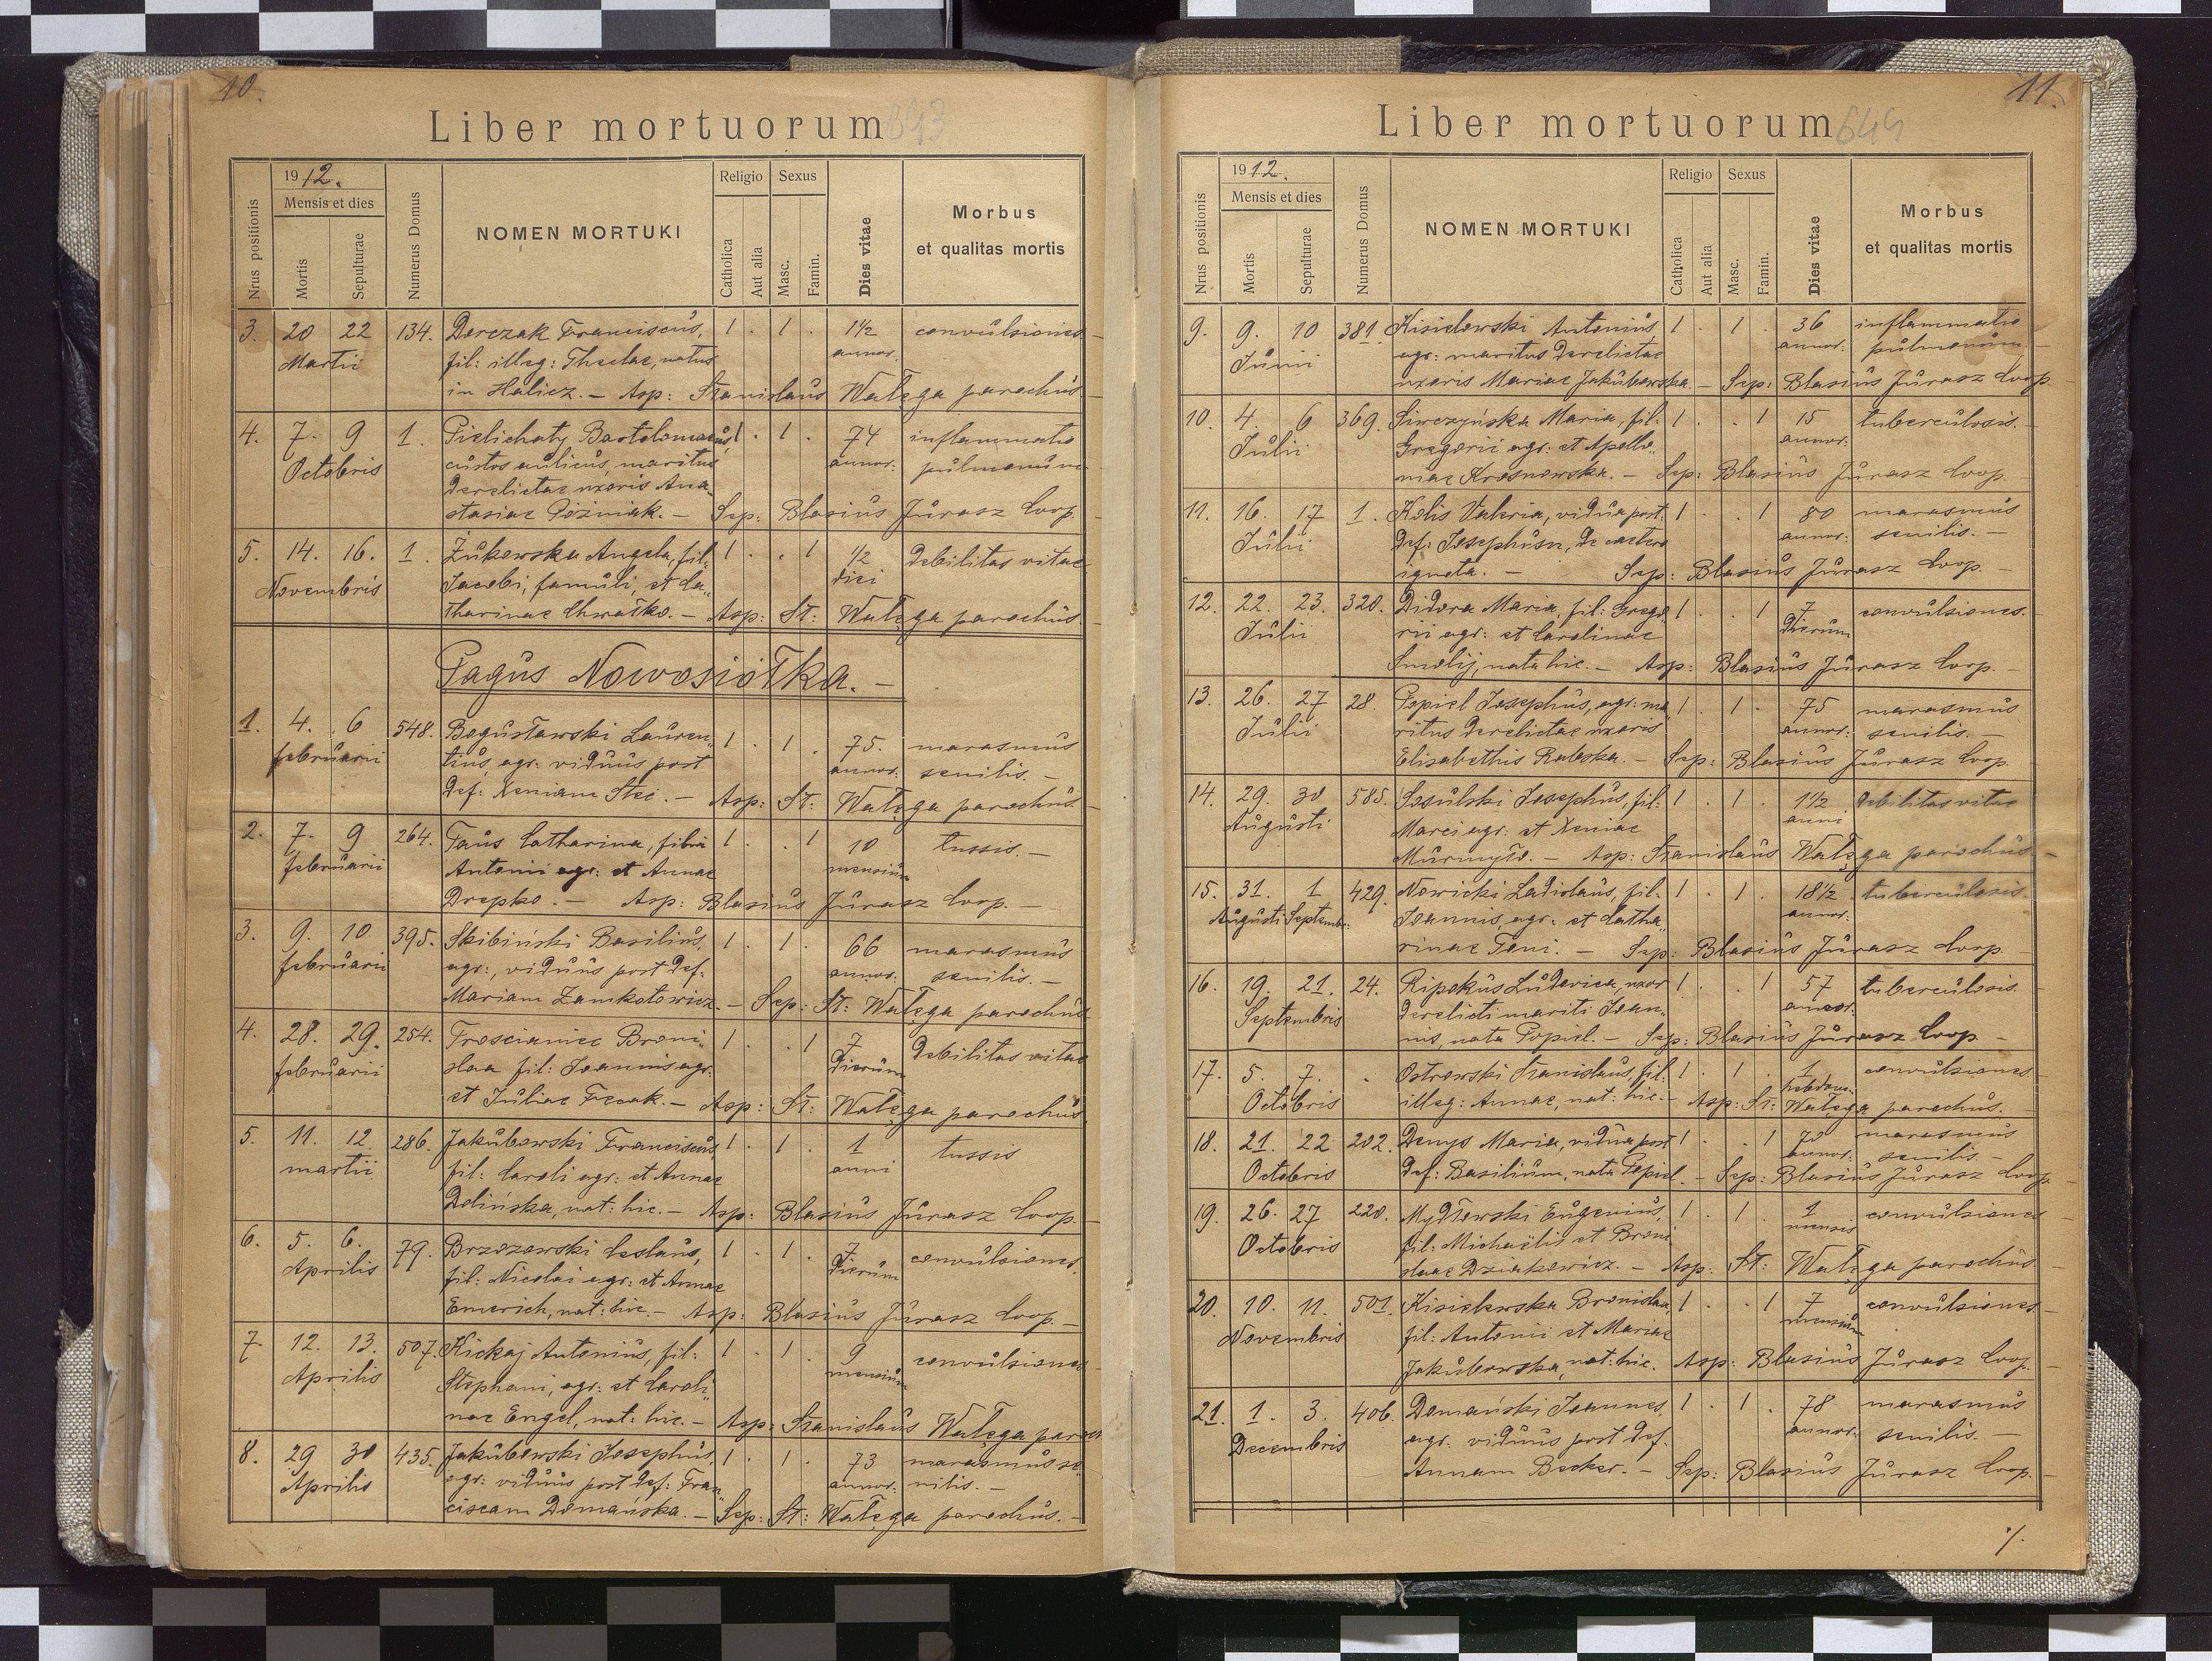 10.
Liber mortuorum 643
Nrus positionis
1912.
Mensis et dies
Mortis
Sepulturae
Numerus Domus
NOMEN MORTUKI
Religio
Catholica
Aut alia
Sexus
Masc.
Famin.
Dies vitae
Morbus
et qualitas mortis
3. 20 22 134. Derczak Franciscus, 1 . 1 . 1½ convulsiones.
Martii fil: illeg: Theclae, natus annor:
in Halicz. – Asp: Stanislaus Wałęga parochus.
4. 7. 9 1. Pielichaty Bartolomaeus, 1 . 1 . 74 inflammatio
Octobris custos aulicus, maritus annor: pulmonum
derelictae uxoris Ana„
stasiae Póżniak. – Sep: Blasius Jurasz Coop.
5. 14. 16. 1. Żukowska Angela, fil: 1 . . 1 ½ Debilitas vitae
Novembris Jacobi, famuli, et Ca„ diei
tharinae Chwałko. – Asp: St: Wałęga parochus.
Pagus Nowosiołka. –
1. 4. 6 548. Bogusławski Lauren„ 1 . 1 . 75. marasmus
februarii tius, agr: viduus post annor: senilis. –
def: Xeniam Stec. – Asp: St: Wałęga parochus.
2. 7. 9 264. Taus Catharina, filia 1 . . 1 10 tussis. –
februarii Antonii agr: et Annae mensium
Drepko. – Asp: Blasius Jurasz Coop. –
3. 9. 10 395. Skibiński Basilius, 1 . 1 . 66 marasmus
februarii agr:, viduus post def: annor: senilis. –
Mariam Zamkotowicz. – Sep: St: Wałęga parochus
4. 28. 29. 254. Troscianiec Broni„ 1 . . 1 7 Debilitas vitae
februarii slaa fil: Joannis agr: dierum
et Juliae – Asp: St: Wałęga parochus.
5. 11. 12 286. Jakubowski Franciscus 1 . 1 . 1 tussis
martii fil: Caroli agr: et Annae anni
Dolińska, nat: hic. – Asp: Blasius Jurasz Coop. –
6. 5. 6. 79. Brzozowski Ceslaus, 1 . 1 . 7 convulsiones.
Aprilis fil: Nicolai agr: et Annae dierum
Emerich, nat: hic. – Asp: Blasius Jurasz Coop. –
7. 12. 13. 507. Kickaj Antonius, fil: 1 . 1 . 9 convulsiones
Aprilis Stephani, agr: et Caroli„ mensium
nae Engel, nat: hic. – Asp: Stanislaus Wałęga paroch
8. 29 30 435. Jakubowski Josephus, 1 . 1 . 73 marasmus se„
Aprilis agr: viduus post def: Fran„ annor: nilis. –
ciscam Domańska. – Sep: St: Wałęga parochus. –
11.
Liber mortuorum 644
Nrus positionis
1912.
Mensis et dies
Mortis
Sepulturae
Numerus Domus
NOMEN MORTUKI
Religio
Catholica
Aut alia
Sexus
Masc.
Famin.
Dies vitae
Morbus
et qualitas mortis
9. 9. 10 381. Kisielewski Antonius 1 . 1 . 36 inflammatio
Junii agr: maritus derelictae annor: pulmonum
uxoris Mariae Jakubowska. – Sep: Blasius Jurasz Coop.
10. 4. 6 369. Sirczyńska Maria, fil: 1 . . 1 15 tuberculosis. –
Julii Gregorii agr: et Apollo„ annor:
niae Krosnowska. – Sep: Blasius Jurasz Coop. –
11. 16. 17 1. Kolis Valeria, vidua post: 1 . . 1 80 marasmus
Julii def: Josephum, de caetero annor: senilis. –
ignota. – Sep: Blasius Jurasz Coop. –
12. 22. 23. 320. Didora Maria, fil: Grego„ 1 . . 1 7 convulsiones. –
Julii rii agr: et Carolinae dierum
Smolij, nata hic. – Asp: Blasius Jurasz Coop. –
13. 26. 27 28. Popiel Josephus, agr: ma„ 1 . 1 . 75 marasmus
Julii ritus derelictae uxoris annor: senilis. –
Elisabethis Rateska. – Sep: Blasius Jurasz Coop.
14. 29. 30 585. Sosulski Josephus, fil: 1 . 1 . 1½ debilitas vitae
Augusti Marci agr: et Xeniae anni
Murmyło. – Asp: Stanislaus Wałęga parochus. –
15. 31. 1 429. Nowicki Ladislaus, fil: 1 . 1 . 18½ tuberculosis.
Augusti Septembr: Joannis, agr: et Catha„ annor:
rinae Teni. – Sep: Blasius Jurasz Coop. –
16. 19. 21. 24. Ripokus Ludovica, uxor 1 . . 1 57 tuberculosis. –
Septembris derelicti mariti Joan„ annor:
nis, nata Popiel. – Sep: Blasius Jurasz Coop –
17. 5. 7. . Ostrowski Stanislaus, fil: 1 . 1 . 1 convulsiones. –
Octobris illeg: Annae, nat: hic. – hebdom: Asp: St: Wałęga parochus. –
18. 21. 22 202. Denys Maria, vidua post 1 . . 1 70 marasmus
Octobris def: Basilium, nata Popiel. – annor: senilis. – Sep: Blasius Jurasz Coop.
19. 26. 27 220. Mydłowski Eugenius, 1 . 1 . 1 convulsiones
Octobris fil: Michaëlis et Broni„ mensis
slaae Dziakowicz. – Asp: St: Wałęga parochus. –
20. 10. 11. 501. Kisielewska Bronislaa, 1 . . 1 7 convulsiones. –
Novembris fil: Antonii et Mariae mensium
Jakubowska, nat: hic. Asp: Blasius Jurasz Coop. –
21. 1. 3. 406. Domański Joannes, 1 . 1 . 78 marasmus
Decembris agr: viduus post def: annor: senilis. –
Annam Becker. – Sep: Blasius Jurasz Coop. –
./.